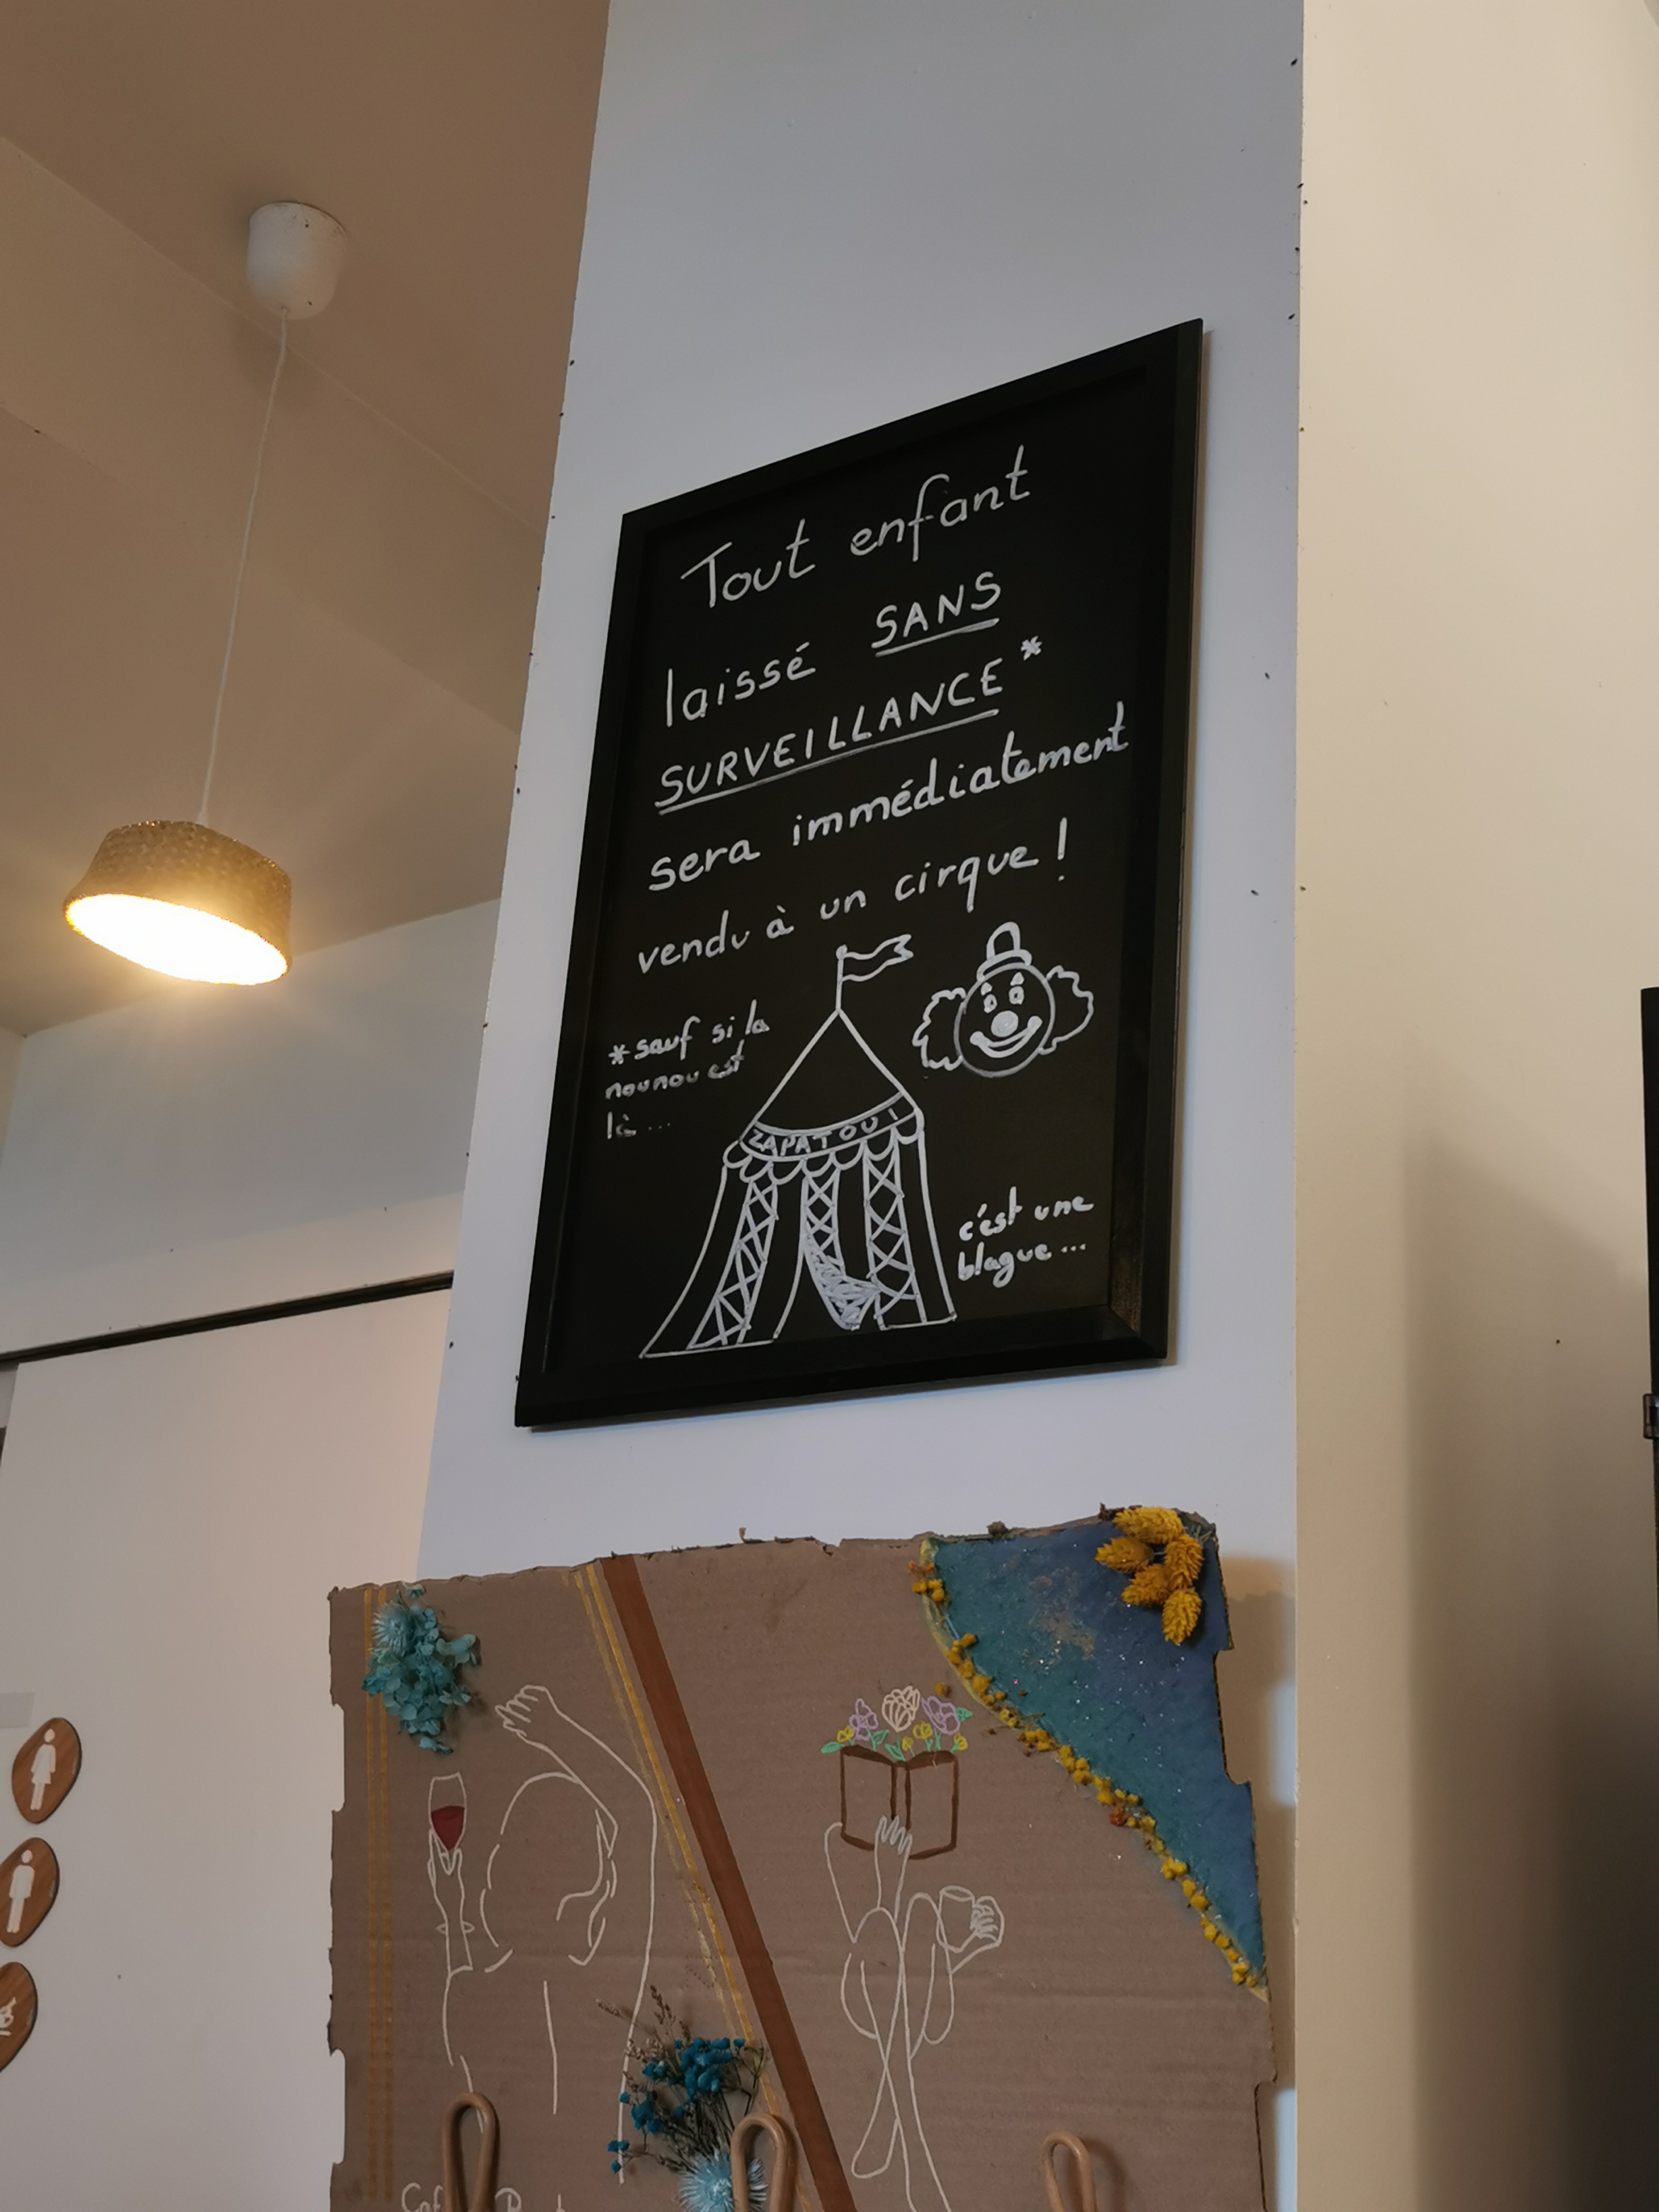 Tout enfant
laissé SANS
SURVEILLANCE*
sera immédiatement
vendu à un cirque !
*sauf si la
nounou est
là ...
ZAPATOU !
c'est une
blague ...